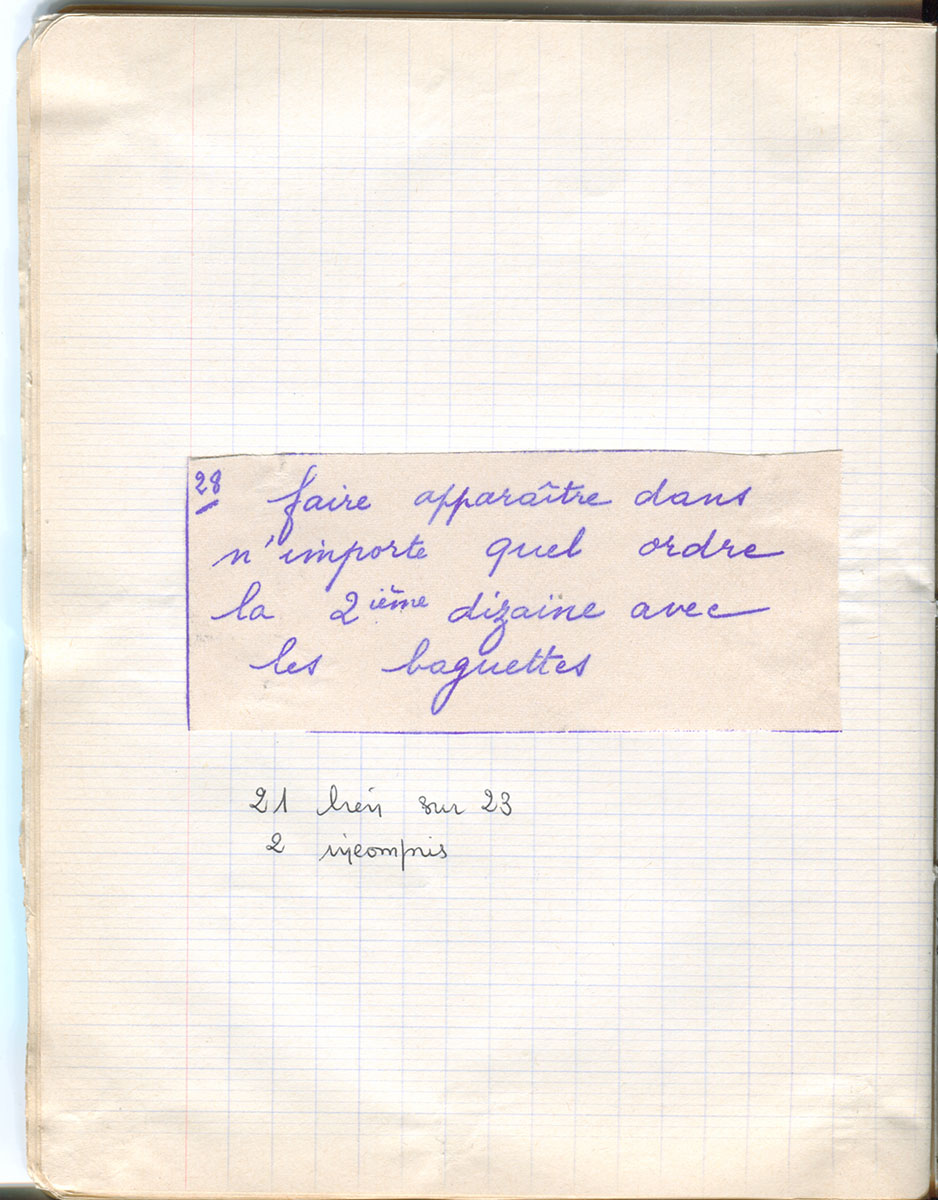 28 faire apparaître dans
n'importe quel ordre
la 2ième dizaine avec
les baguettes
21 bien sur 23
2 incompris